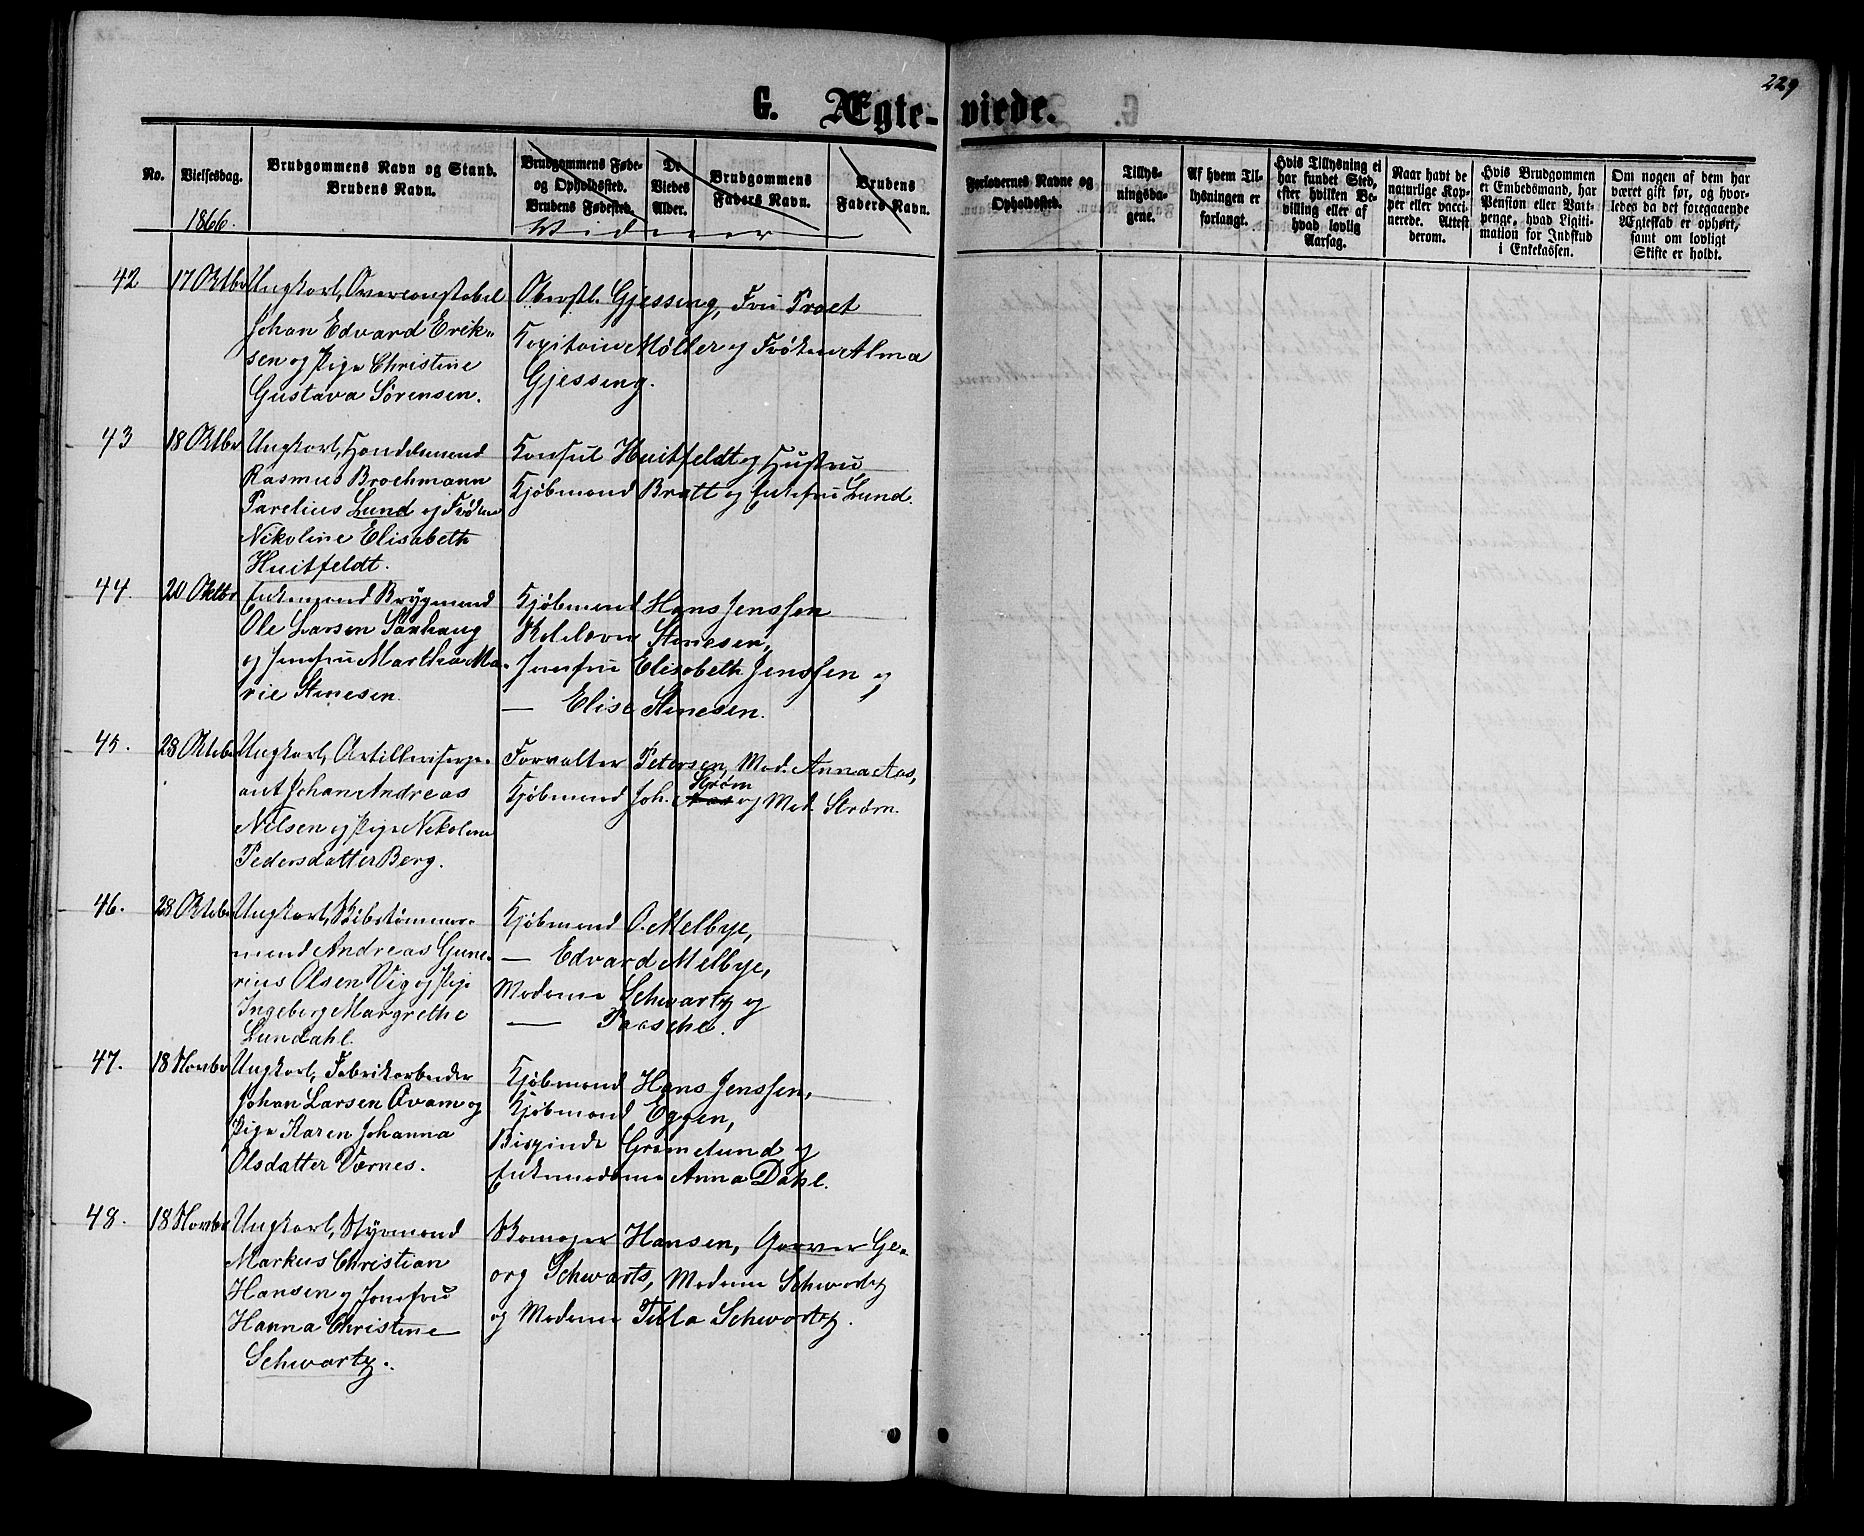 229
G. Ægte-viede.
No.
Vielsesdag.
1866.
Brudgommens Navn og Stand.
Brudens Navn.
Brudgommens Føde-
og Opholdssted.
Brudens Fødested.
De
Viedes
Alder.
Brudgommens
Faders Navn.
Brudens
Faders Navn.
Vidner
Forlovernes Navne og
Opholdssted.
Tillys-
ningsda-
gene.
Af hvem Til-
lysningen er
forlangt.
Hvis Tillysning ei
har fundet Sted,
efter hvilken Be-
villing eller af
hvad lovlig
Aarsag.
Naar havt de
naturlige Kop-
per eller vacci-
nerede. Attest
derom.
Hvis Brudgommen
er Embedsmand, har
Pension eller Vart-
penge, hvad Ligiti-
mation for Indskud
i Enkekassen.
Om nogen af dem har
været gift før, og hvor-
ledes da det foregaaende
Ægteskab er ophørt,
samt om lovligt
Skifte er holdt.
42
17 Oktbr
Ungkarl, Overconstabel
Johan Edvard Erik-
sen og Pige Christine
Gustava Sørensen.
Oberstl. Gjessing, Fru Proet
Kapitain Møller og Frøken Alma
Gjessing.
43
18 Oktbr
Ungkarl, Handelsmand
Rasmus Brochmann
Parelius Lund og Frøken
Nikoline Elisabeth
Huitfeldt.
Konsul Huitfeldt og Hustru
Kjøbmand Bratt og Enkefru Lund.
44.
20 Oktbr
Enkemand Brygmand
Ole Larsen Saxhaug
og Jomfru Martha Ma-
rie Stenesen.
Kjøbmand Hans Jenssen
Stenesen,
Jomfru Elisabeth Jenssen og
— Elise Stenesen.
45.
28 Oktober
Ungkarl, Artilleriserge-
ant Johan Andreas
Nilsen og Pige Nikoline
Pedersdatter Berg.
Forvalter Petersen, Mad. Anna Aas,
Kjøbmand Joh. Strøm og Mad. Strøm.
46.
28 Oktober
Ungkarl, Skibstømmer-
mand Andreas Gune-
rius Olsen Vig og Pige
Ingeborg Margrethe
Lundahl.
Kjøbmand O. Melbye,
— Edvard Melbye,
Madame Schwartz og
— Paasche.
47.
18 Novbr
Ungkarl, Fabrikarbeider
Johan Larsen Qvam og
Pige Karen Johanna
Olsdatter Værnes.
Kjøbmand Hans Jenssen,
Kjøbmand Eggen,
Bispinde Grimelund og
Enkemadame Anna Dahl.
48.
18 Novbr
Ungkarl, Styrmand
Markus Christian
Hansen og Jomfru
Hanna Christine
Schwartz.
Skomager Hansen, Garver Ge-
org Schwarts, Madame Schwartz
og Madame Tilla Schwartz.